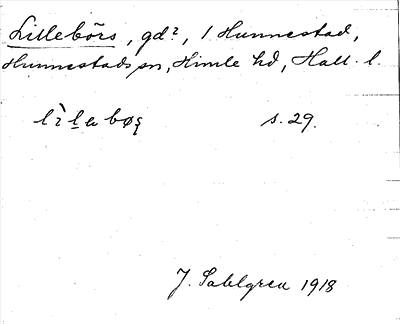 Lillebörs, gd?, 1 Hunnestad,
Hunnestads sn, Himle hd, Hall. l.
s. 29.
J. Sahlgren 1918